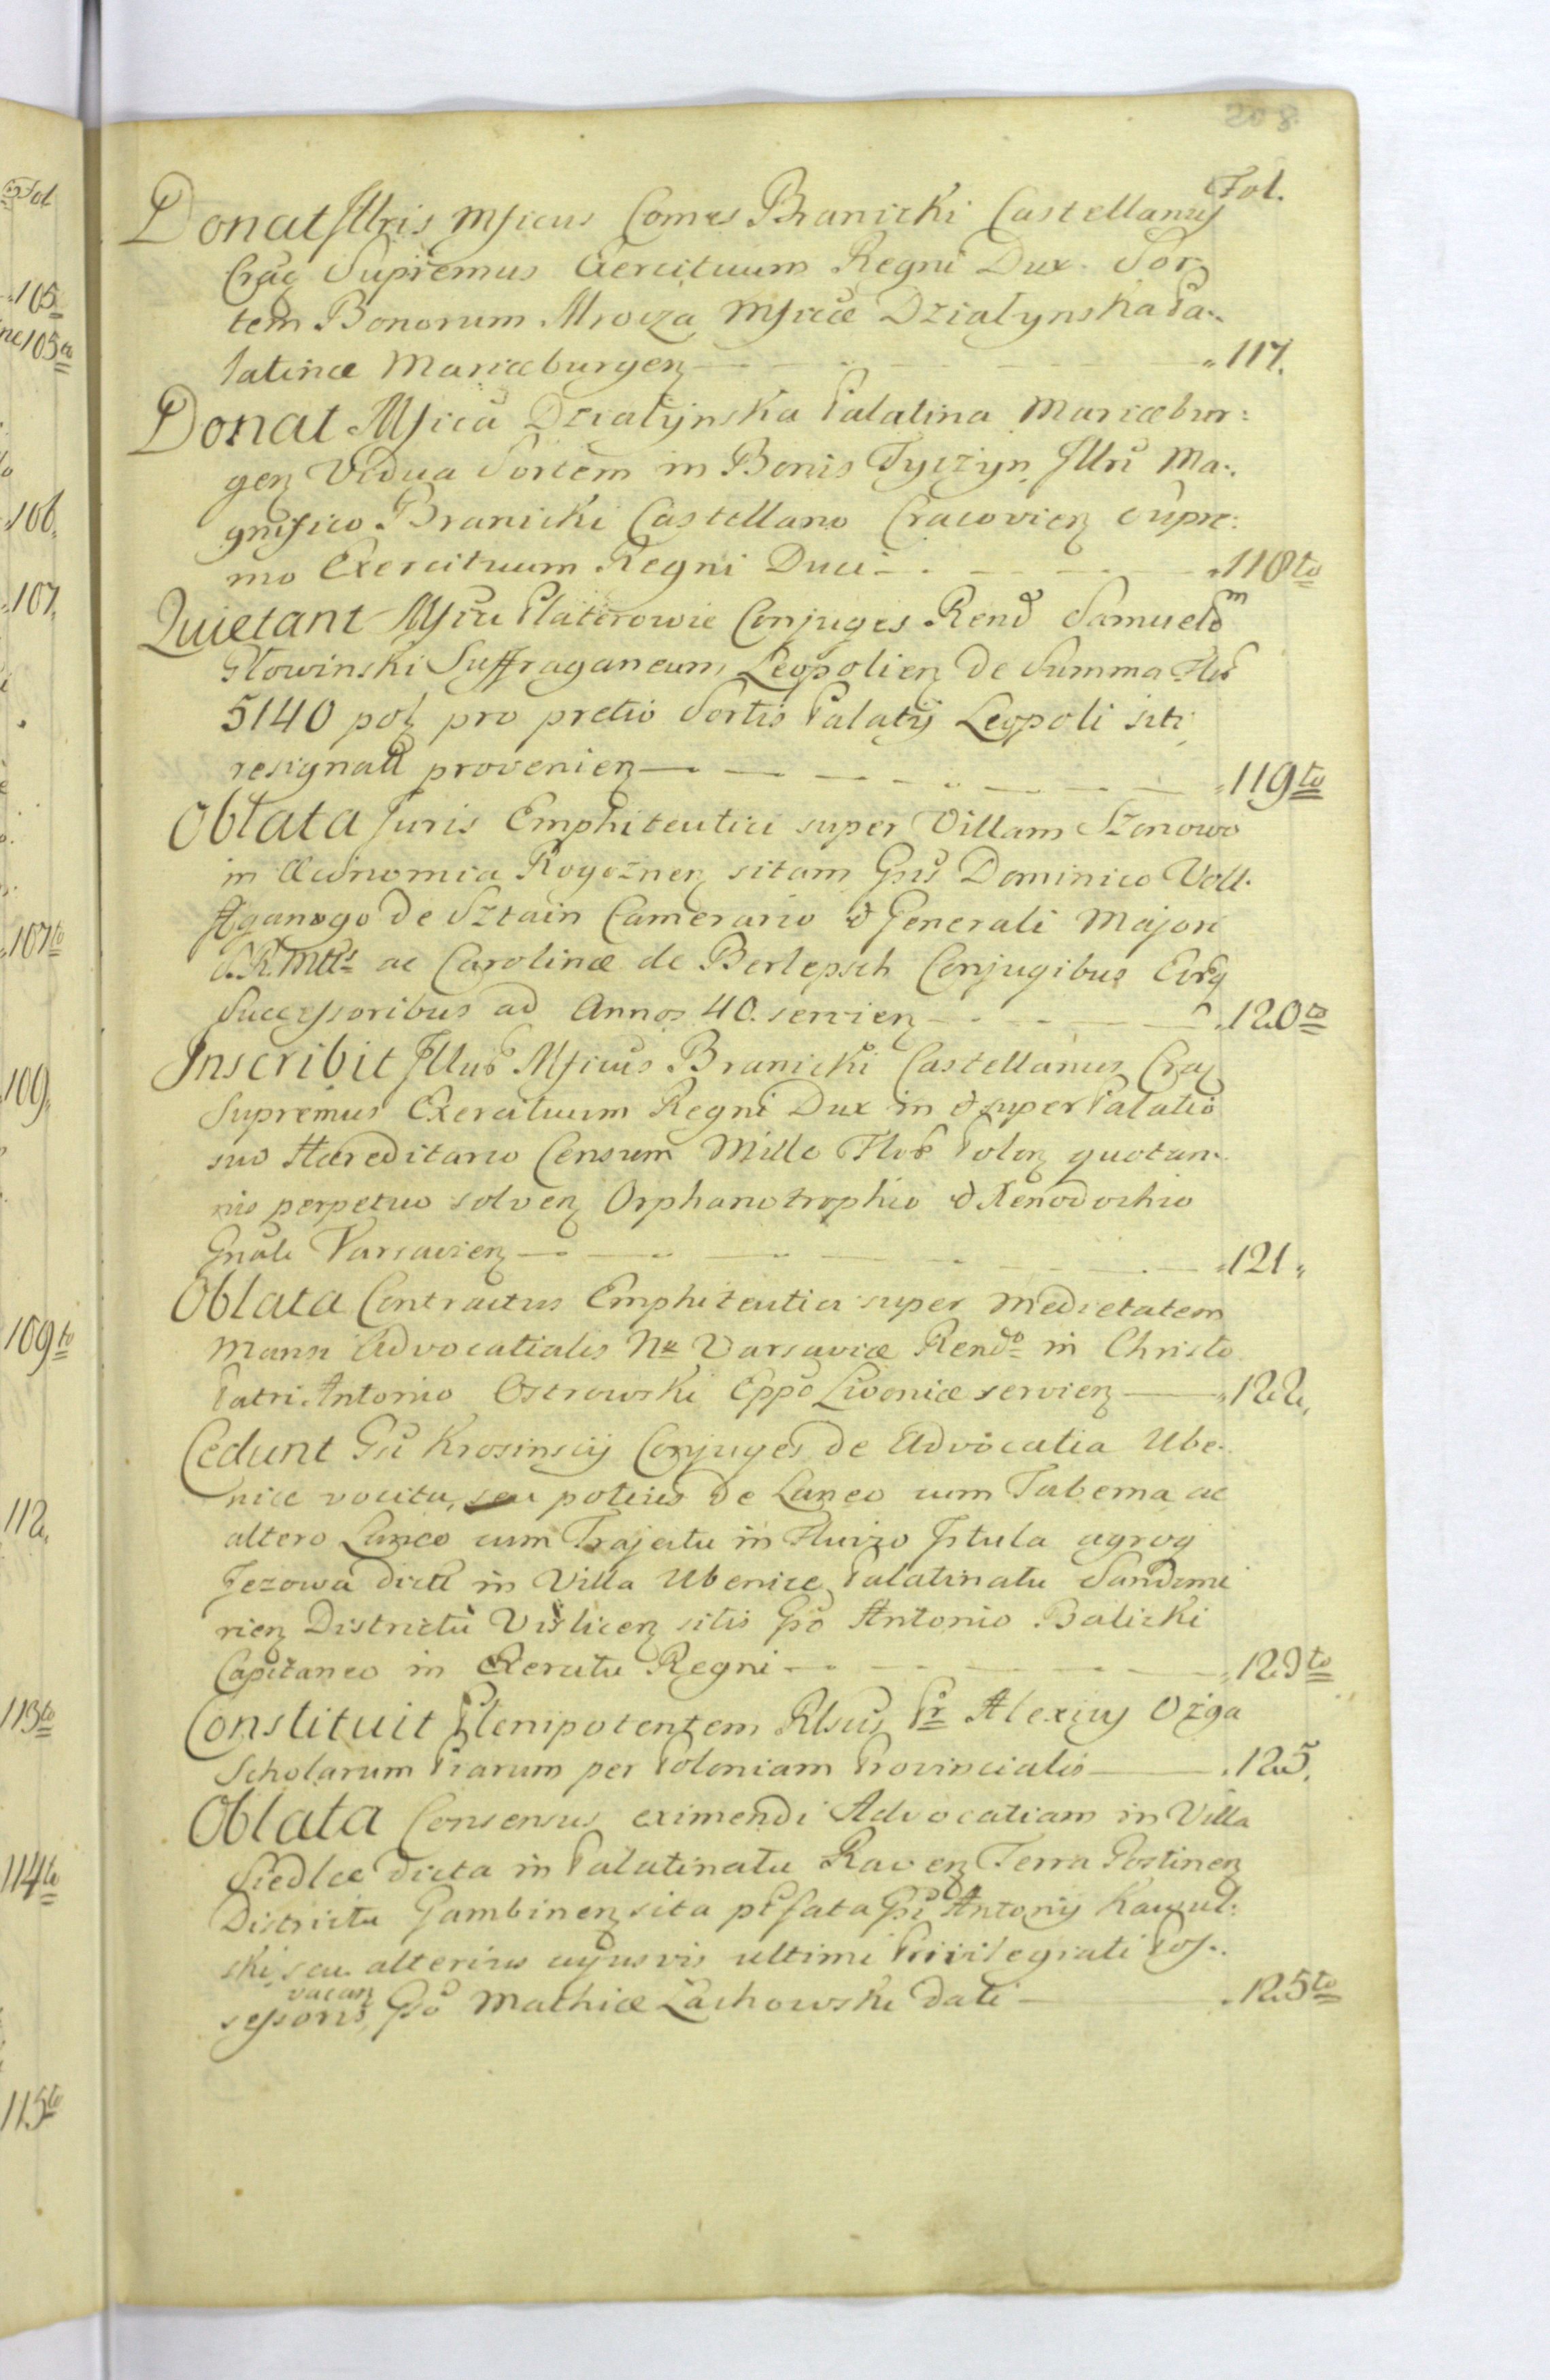 208.
Fol.
Donat Illris Mficus Comes Branicki Castellanus
Crac̃ Supremus Exercituum Regni Dux. Sor-
tem Bonorum Mrocza Mficæ Działynska Pa-
latinæ Mariæburgen̄ 117.
Donat Mfica Działynska Palatina Mariæbur:
gen̄ Vidua Sortem in Bonis Tyczyn Illri Ma-
gnifico Branicki Castellano Cracovien̄ Supre:
mo Exercituum Regni Duci 118to
Quietant Mfici Platerowie Conjuges Rend Samuelem
Głowinski Suffraganeum Leopolien̄ de Summa Flor̃
5140 pol̃ pro pretio Sortis Palatij Leopoli siti
resignatt provenien̄ 119to
Oblata Juris Emphiteutici super Villam Szonowo
in Œconomia Rogoznen̄ sitam Gnis Dominico Voll.
Aganogo de Sztain Camerario & Generali Majori
S.R.Mttis ac Carolinæ de Berlepsch Conjugibus Eorq
Successoribus ad Annos 40. servien̄ 120to
Inscribit Illus Mficus Branicki Castellanus Crac̃
Supremus Exercituum Regni Dux in & super Palatio
suo Hæreditario Censum Mille Flor̃ Polon̄ quotan-
nis perpetuo solven̄ Orphanotrophio & Xenodochio
Gnali Varsavien̄ 121.
Oblata Contractus Emphiteutici super Medietatem
Mansi Advocatialis Nx Varsaviæ Rendo in Christo
Patri Antonio Ostrowski Eppo Livoniæ servien̄ 122.
Cedunt Gii Krosinscij Conjuges de Advocatia Ube-
nice vocita, seu potius de Laneo cum Taberna ac
altero Laneo cum Trajectu in Fluvio Istula agroq
Jezowa dictt in Villa Ubenice Palatinatu Sandomi
rien̄ Districtu Vislicen̄ sitis Gso Antonio Balicki
Capitaneo in Exercitu Regni 123to
Constituit Plenipotentem Rlsus Pr Alexius Ożga
Scholarum Piarum per Poloniam Provincialis 125.
Oblata Consensus eximendi Advocatiam in Villa
Siedlce dicta in Palatinatu Raven̄ Terra Gostinen̄
Districtu Gambinen̄ sita pfata Gsi Antonij Kawul:
ski, seu alterius cujusvis ultimi Privilegiati Pos-
vacan̄
sessoris, Gso Mathiæ Lachowski dati 125to
Fol
105
105to
106.
107.
107to
109.
109to
112.
113to
114to
115to